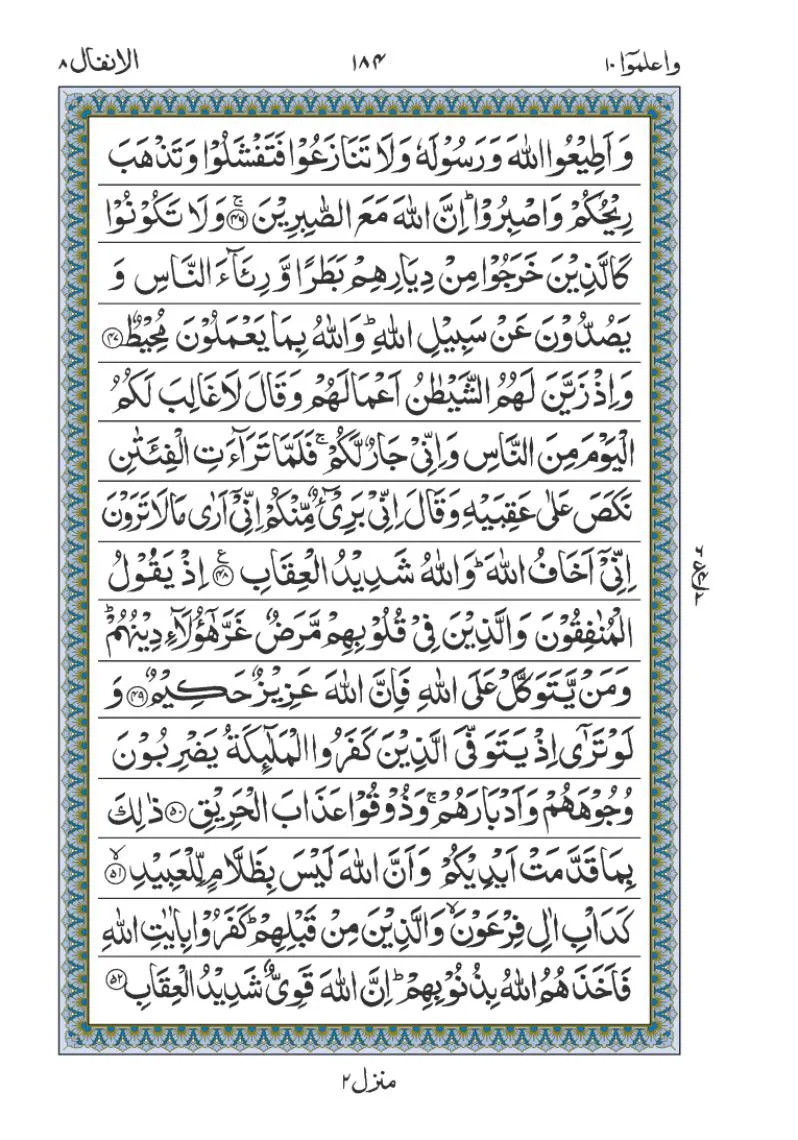 واعلموٓا ١٠
١٨٤
الانفال ٨
وَ اَطِیْعُوا اللّٰهَ وَ رَسُوْلَهٗ وَ لَا تَنَازَعُوْا فَتَفْشَلُوْا وَ تَذْهَبَ
رِیْحُكُمْ وَ اصْبِرُوْا ؕ اِنَّ اللّٰهَ مَعَ الصّٰبِرِیْنَ ۚ﴿۴۶﴾ وَ لَا تَكُوْنُوْا
كَالَّذِیْنَ خَرَجُوْا مِنْ دِیَارِهِمْ بَطَرًا وَّ رِئَآءَ النَّاسِ وَ
یَصُدُّوْنَ عَنْ سَبِیْلِ اللّٰهِ ؕ وَ اللّٰهُ بِمَا یَعْمَلُوْنَ مُحِیْطٌ ﴿۴۷﴾
وَ اِذْ زَیَّنَ لَهُمُ الشَّیْطٰنُ اَعْمَالَهُمْ وَ قَالَ لَا غَالِبَ لَكُمُ
الْیَوْمَ مِنَ النَّاسِ وَ اِنِّیْ جَارٌ لَّكُمْ ۚ فَلَمَّا تَرَآءَتِ الْفِئَتٰنِ
نَكَصَ عَلٰی عَقِبَیْهِ وَ قَالَ اِنِّیْ بَرِیْٓءٌ مِّنْكُمْ اِنِّیْۤ اَرٰی مَا لَا تَرَوْنَ
اِنِّیْۤ اَخَافُ اللّٰهَ ؕ وَ اللّٰهُ شَدِیْدُ الْعِقَابِ ﴿۴۸﴾ ع اِذْ یَقُوْلُ
الْمُنٰفِقُوْنَ وَ الَّذِیْنَ فِیْ قُلُوْبِهِمْ مَّرَضٌ غَرَّ هٰۤؤُلَآءِ دِیْنُهُمْ ؕ
وَ مَنْ یَّتَوَكَّلْ عَلَی اللّٰهِ فَاِنَّ اللّٰهَ عَزِیْزٌ حَكِیْمٌ ﴿۴۹﴾ وَ
لَوْ تَرٰۤی اِذْ یَتَوَفَّی الَّذِیْنَ كَفَرُوا الْمَلٰٓىِٕكَةُ یَضْرِبُوْنَ
وُجُوْهَهُمْ وَ اَدْبَارَهُمْ ۚ وَ ذُوْقُوْا عَذَابَ الْحَرِیْقِ ﴿۵۰﴾ ذٰلِكَ
بِمَا قَدَّمَتْ اَیْدِیْكُمْ وَ اَنَّ اللّٰهَ لَیْسَ بِظَلَّامٍ لِّلْعَبِیْدِ ۙ﴿۵۱﴾
كَدَاْبِ اٰلِ فِرْعَوْنَ ۙ وَ الَّذِیْنَ مِنْ قَبْلِهِمْ ؕ كَفَرُوْا بِاٰیٰتِ اللّٰهِ
فَاَخَذَهُمُ اللّٰهُ بِذُنُوْبِهِمْ ؕ اِنَّ اللّٰهَ قَوِیٌّ شَدِیْدُ الْعِقَابِ ﴿۵۲﴾
منزل ٢